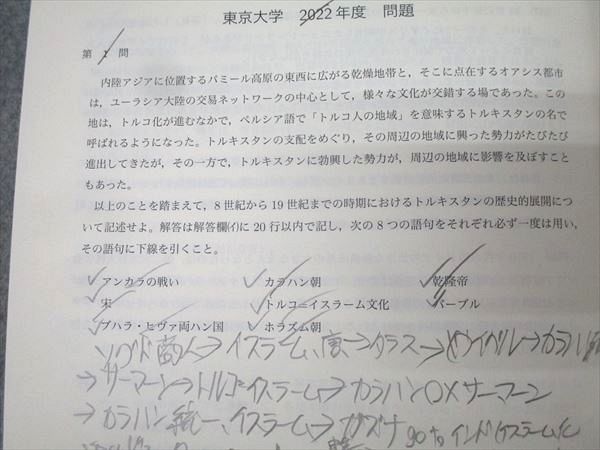 東京大学 2022年度 問題
第 1 問
内陸アジアに位置するパミール高原の東西に広がる乾燥地帯と，そこに点在するオアシス都市
は，ユーラシア大陸の交易ネットワークの中心として，様々な文化が交錯する場であった。この
地は，トルコ化が進むなかで，ペルシア語で「トルコ人の地域」を意味するトルキスタンの名で
呼ばれるようになった。トルキスタンの支配をめぐり，その周辺の地域に興った勢力がたびたび
進出してきたが，その一方で，トルキスタンに勃興した勢力が，周辺の地域に影響を及ぼすこと
もあった。
以上のことを踏まえて，8世紀から19世紀までの時期におけるトルキスタンの歴史的展開につ
いて記述せよ。解答は解答欄(イ)に20行以内で記し，次の8つの語句をそれぞれ必ず一度は用い，
その語句に下線を引くこと。
アンカラの戦い カラハン朝 乾隆帝
宋 トルコ=イスラーム文化 バーブル
ブハラ・ヒヴァ両ハン国 ホラズム朝
ソグド商人→イスラーム、唐→タラス→ウイグル→カラハン
→サーマーン→トルコ=イスラーム→カラハン○×サーマーン
→カラハン統一、イスラーム→ガズナ インド イスラーム化